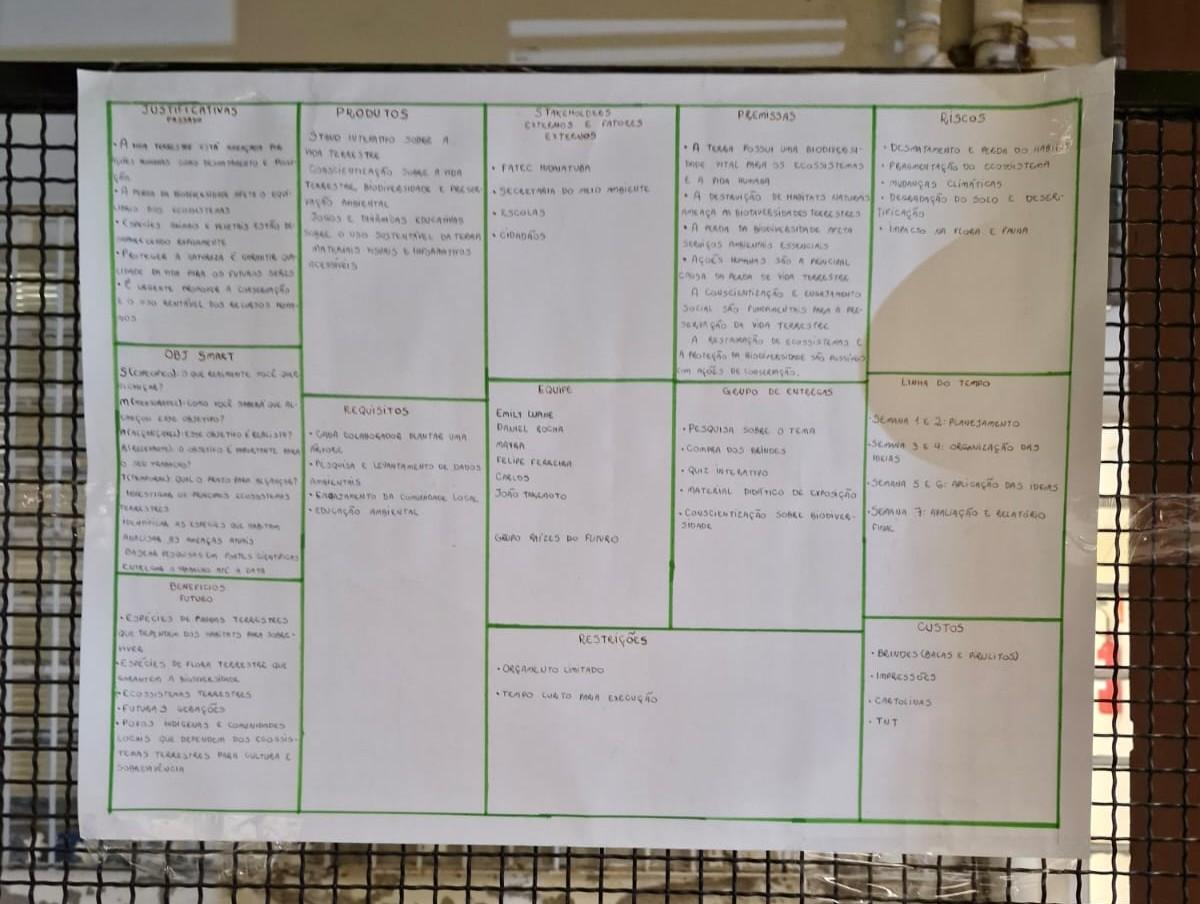 JUSTIFICATIVAS
PASSADO
• A VIDA TERRESTRE ESTÁ AMEAÇADA POR
AÇÕES HUMANAS COMO DESMATAMENTO E POLUI-
ÇÃO
• A PERDA DA BIODIVERSIDADE AFETA O EQUI-
LÍBRIO DOS ECOSSISTEMAS
• ESPÉCIES ANIMAIS E VEGETAIS ESTÃO DE-
SAPARECENDO RAPIDAMENTE
• PROTEGER A NATUREZA É GARANTIR QUA-
LIDADE DA VIDA PARA OS FUTUROS SERES
• É URGENTE PROMOVER A CONSERVAÇÃO
E O USO RENTÁVEL DOS RECURSOS
OBJ SMART
S(ESPECÍFICO): O QUE REALMENTE VOCÊ QUER
ALCANÇAR?
M(MENSURÁVEL): COMO VOCÊ SABERÁ QUE AL-
CANÇOU ESSE OBJETIVO?
A(ALCANÇÁVEL): ESSE OBJETIVO É REALISTA?
R(RELEVANTE): O OBJETIVO É IMPORTANTE PARA
O SEU TRABALHO?
T(TEMPORAL) QUAL O PRAZO PARA ALCANÇAR?
INVESTIGAR OS PRINCIPAIS ECOSSISTEMAS
TERRESTRES
IDENTIFICAR AS ESPÉCIES QUE HABITAM
ANALISAR AS AMEAÇAS ATUAIS
BASEAR PESQUISAS EM FONTES CIENTÍFICAS
ENTREGAR O TRABALHO ATÉ A DATA
BENEFÍCIOS
FUTURO
• ESPÉCIES DE FAUNAS TERRESTRES
QUE DEPENDEM DOS HABITATS PARA SOBRE-
VIVER
• ESPÉCIES DE FLORA TERRESTRE QUE
GARANTEM A BIODIVERSIDADE
• ECOSSISTEMAS TERRESTRES
• FUTURAS GERAÇÕES
• POVOS INDÍGENAS E COMUNIDADES
LOCAIS QUE DEPENDEM DOS ECOSSIS-
TEMAS TERRESTRES PARA CULTURA E
SOBREVIVÊNCIA
PRODUTOS
STAND INTERATIVO SOBRE A
VIDA TERRESTRE
CONSCIENTIZAÇÃO SOBRE A VIDA
TERRESTRE, BIODIVERSIDADE E PRESER-
VAÇÃO AMBIENTAL
JOGOS E DINÂMICAS EDUCATIVAS
SOBRE O USO SUSTENTÁVEL DA TERRA
MATERIAIS VISUAIS E INFORMATIVOS
ACESSÍVEIS
REQUISITOS
• CADA COLABORADOR PLANTAR UMA
ÁRVORE
• PESQUISA E LEVANTAMENTO DE DADOS
AMBIENTAIS
• ENGAJAMENTO DA COMUNIDADE LOCAL
• EDUCAÇÃO AMBIENTAL
STAKEHOLDERS
EXTERNOS E FATORES
EXTERNOS
• FATEC
• SECRETARIA DO MEIO AMBIENTE
• ESCOLAS
• CIDADÃOS
EQUIPE
EMILY
DANIEL ROCHA
MAYRA
FELIPE FERREIRA
CARLOS
JOÃO
GRUPO RAÍZES DO FUTURO
RESTRIÇÕES
• ORÇAMENTO LIMITADO
• TEMPO CURTO PARA EXECUÇÃO
PREMISSAS
• A TERRA POSSUI UMA BIODIVERSI-
DADE VITAL PARA OS ECOSSISTEMAS
E A VIDA HUMANA
• A DESTRUIÇÃO DE HABITATS NATURAIS
AMEAÇA AS BIODIVERSIDADES TERRESTRES
• A PERDA DA BIODIVERSIDADE AFETA
SERVIÇOS AMBIENTAIS ESSENCIAIS
• AÇÕES HUMANAS SÃO A PRINCIPAL
CAUSA DA PERDA DE VIDA TERRESTRE
A CONSCIENTIZAÇÃO E ENGAJAMENTO
SOCIAL SÃO FUNDAMENTAIS PARA A PRE-
SERVAÇÃO DA VIDA TERRESTRE
A RESTAURAÇÃO DE ECOSSISTEMAS E
A PROTEÇÃO DA BIODIVERSIDADE SÃO POSSÍVEIS
COM AÇÕES DE CONSERVAÇÃO.
GRUPO DE ENTREGAS
• PESQUISA SOBRE O TEMA
• COMPRA DOS BRINDES
• QUIZ INTERATIVO
• MATERIAL DIDÁTICO DE EXPOSIÇÃO
• CONSCIENTIZAÇÃO SOBRE BIODIVER-
SIDADE
RISCOS
• DESMATAMENTO E PERDA DO HABITAT
• FRAGMENTAÇÃO DO ECOSSISTEMA
• MUDANÇAS CLIMÁTICAS
• DEGRADAÇÃO DO SOLO E DESER-
TIFICAÇÃO
• IMPACTO NA FLORA E FAUNA
LINHA DO TEMPO
• SEMANA 1 E 2: PLANEJAMENTO
• SEMANA 3 E 4: ORGANIZAÇÃO DAS
IDEIAS
• SEMANA 5 E 6: APLICAÇÃO DAS IDEIAS
• SEMANA 7: AVALIAÇÃO E RELATÓRIO
FINAL
CUSTOS
• BRINDES (BALAS E PIRULITOS)
• IMPRESSÕES
• CARTOLINAS
• TNT